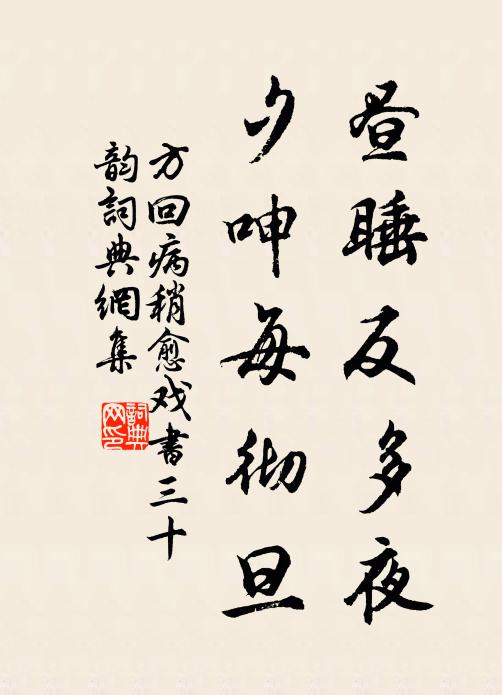 昼睡反多夜
夕呻每彻旦
方回病稍愈戏書三十
韵詞典網集
詞典网印